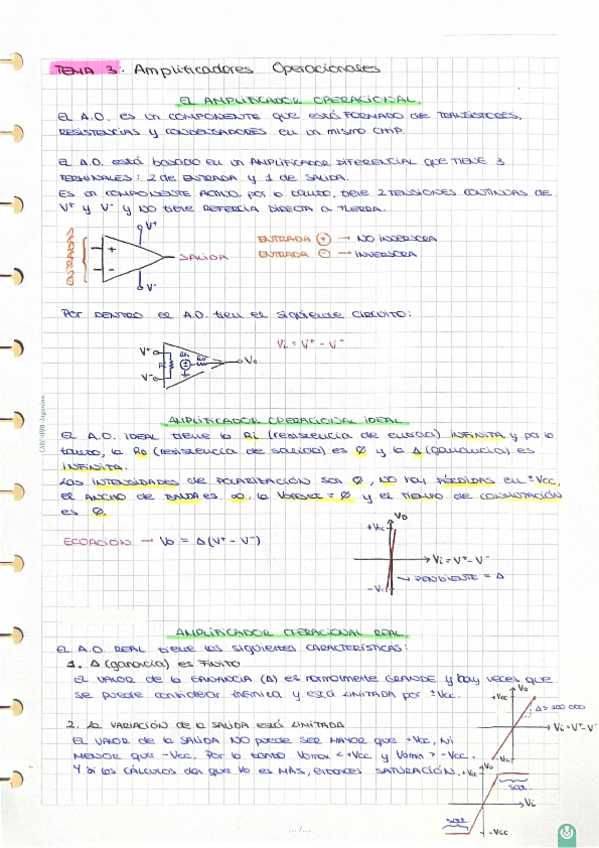 TEMA 3: Amplificadores Operacionales
EL AMPLIFICADOR OPERACIONAL.
EL A.O. es un COMPONENTE que está FORMADO de TRANSISTORES,
RESISTENCIAS y CONDENSADORES en un mismo CHIP.
EL A.O. está basado en un AMPLIFICADOR DIFERENCIAL que TIENE 3
TERMINALES: 2 de ENTRADA y 1 de SALIDA.
Es un COMPONENTE ACTIVO, por lo tanto, tiene 2 TENSIONES CONTINUAS de
V+ y V- y NO tiene REFERCIA DIRECTA a TIERRA.
V+
ENTRADAS
+
-
SALIDA
V-
ENTRADA + → NO INVERSORA
ENTRADA - → INVERSORA
POR DENTRO el A.O. tien el siguiente CIRCUITO:
V+
V-
Vo
Vi = V+ - V-
AMPLIFICADOR OPERACIONAL IDEAL
EL A.O. IDEAL tiene la Ri (resistencia de entrada) INFINITA y por lo
tanto, la Ro (resistencia de salida) es Ø y la A (ganancia) es
INFINITA.
Las INTENSIDADES de POLARIZACIÓN son Ø, NO hay PÉRDIDAS en ±Vcc,
el ANCHO de BANDA es ∞, la VOFFSET = Ø y el TIEMPO de CONMUTACIÓN
es Ø.
ECUACIÓN → Vo = A(V+ - V-)
Vo
+Vcc
Vi = V+ - V-
PENDIENTE = A
AMPLIFICADOR OPERACIONAL REAL
EL A.O. REAL tiene las siguientes CARACTERÍSTICAS:
1. A (ganancia) es FINITO
EL VALOR de la GANANCIA (A) es normalmente GRANDE y hay veces que
se puede considerar infinita y está LIMITADA por ±Vcc.
Vo
+Vcc
A ≥ 100 000
Vi = V+ - V-
-Vcc
2. La VARIACIÓN de la SALIDA está LIMITADA
EL VALOR de la SALIDA NO puede SER MAYOR que +Vcc, NI
MENOR que -Vcc. Por lo tanto Vomax < +Vcc y Vomin > -Vcc.
Y si los CÁLCULOS dan que Vo es MÁS, entonces SATURACIÓN.
+Vcc
Vo
sat.
Vi
sat
-Vcc
.../...